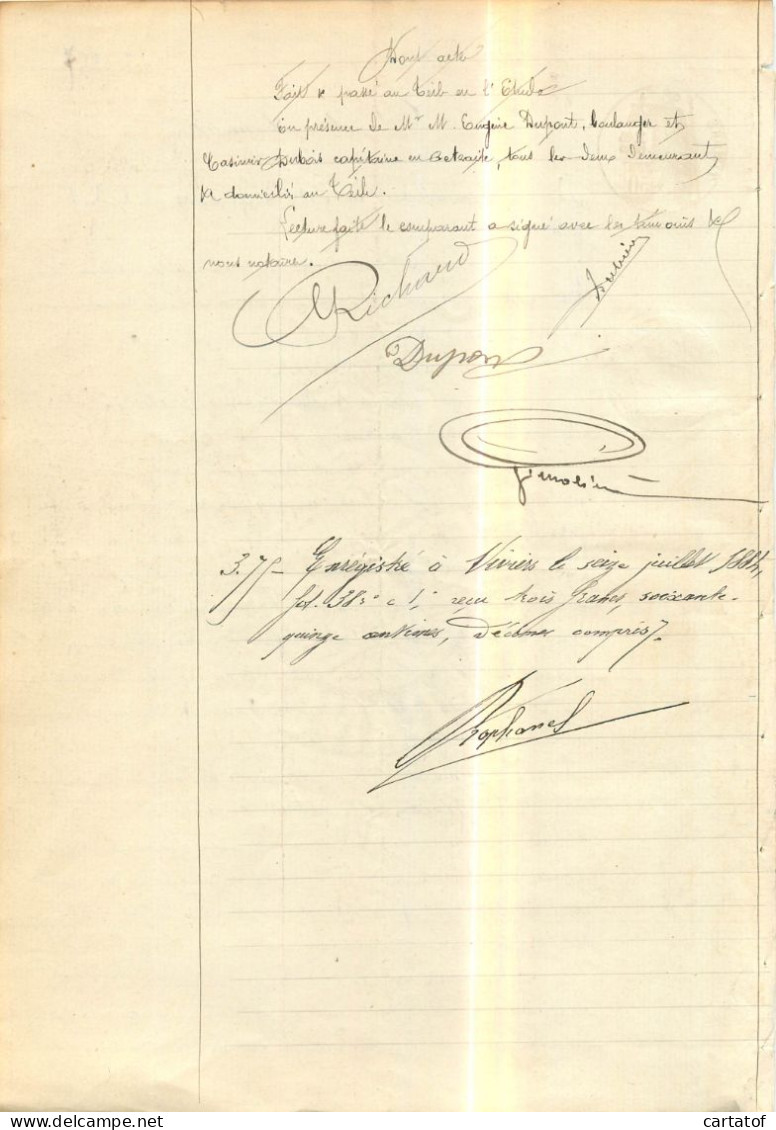 Dont acte
Fait & passé au Teil en l'Etude
En présence de Mr M. Eugène Dupont, boulanger et
Casimir Dubois capitaine en retraite, tous les deux demeurant
& domiciliés au Teil.
Lecture faite le comparant a signé avec les témoins &
nous notaire.
Richaud
Dupont
3.75 Enrégistré à Viviers le seize juillet 1884,
fol. 38 r° c 1, reçu trois francs, soixante-
quinze centimes, décimes compris.
cartatof